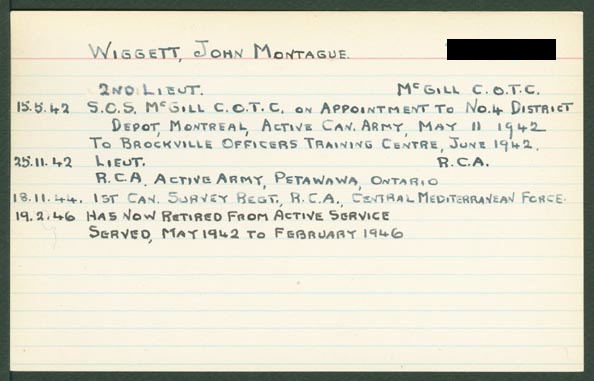 WIGGETT, JOHN MONTAGUE.
2ND LIEUT. McGILL C.O.T.C.
15.5.42 S.O.S. McGILL C.O.T.C. ON APPOINTMENT TO NO.4 DISTRICT
DEPOT, MONTREAL, ACTIVE CAN. ARMY, MAY 11 1942
TO BROCKVILLE OFFICERS TRAINING CENTRE, JUNE 1942.
25.11.42 LIEUT. R.C.A.
R.C.A. ACTIVE ARMY, PETAWAWA, ONTARIO
18.11.44. 1ST CAN. SURVEY REGT., R.C.A., CENTRAL MEDITERRANEAN FORCE.
19.2.46 HAS NOW RETIRED FROM ACTIVE SERVICE
SERVED, MAY 1942 TO FEBRUARY 1946